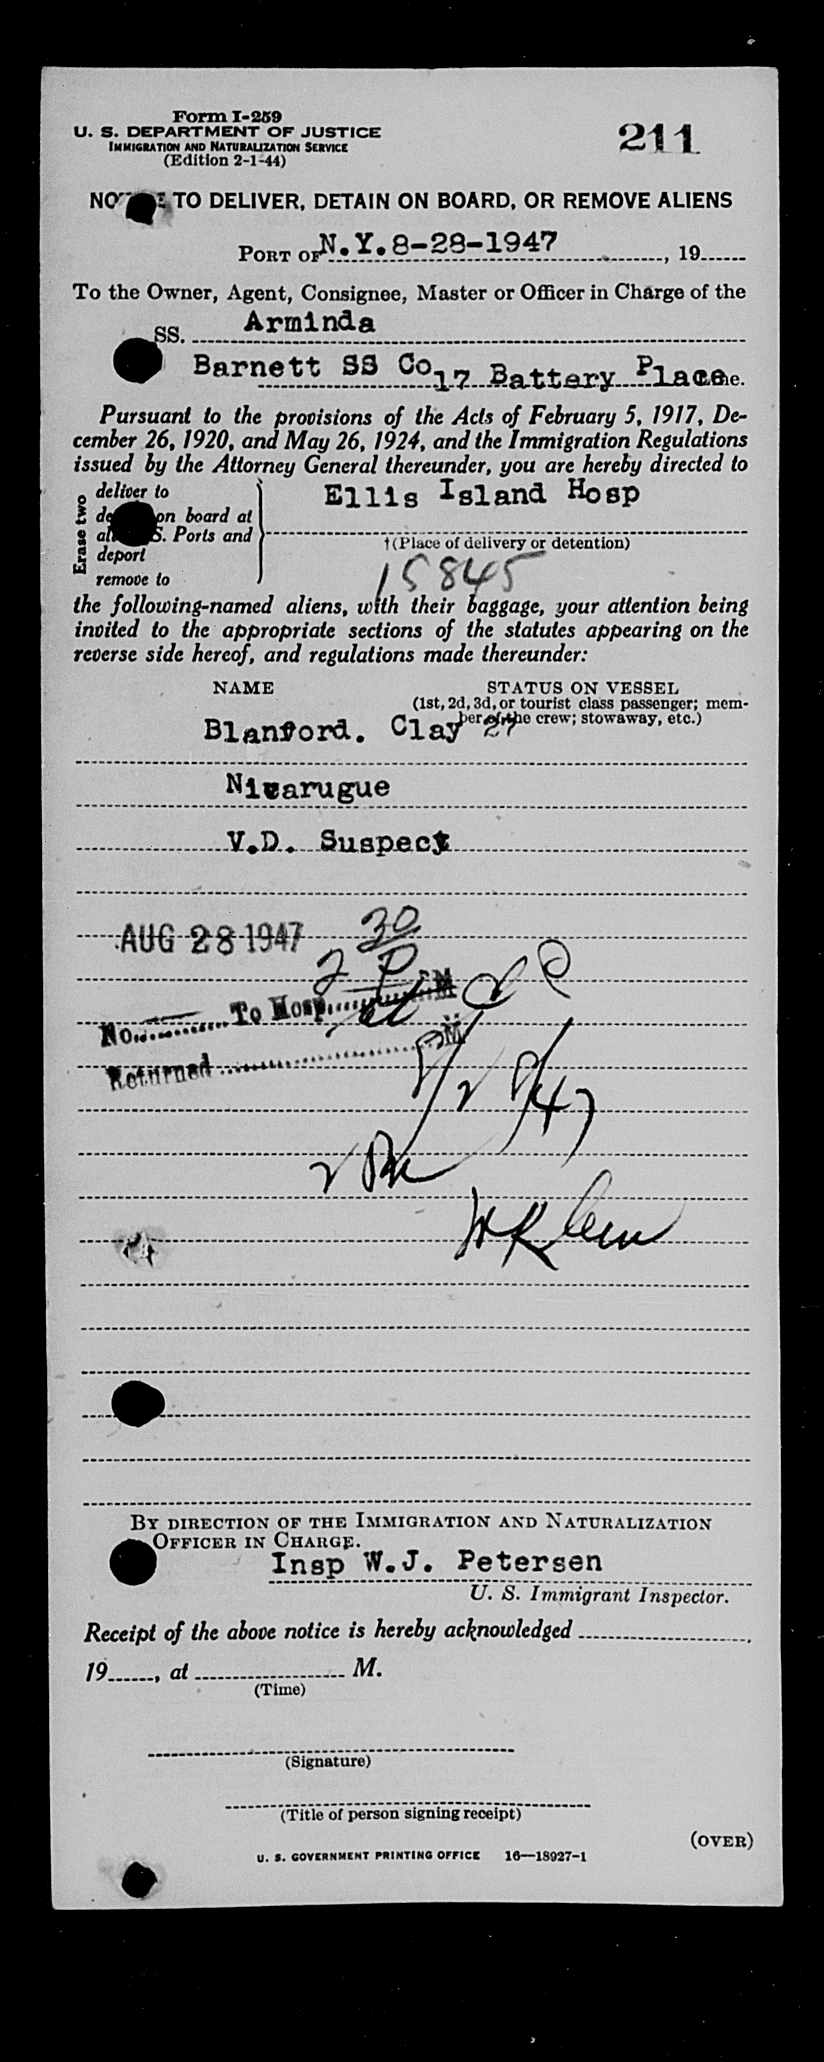 Form I-259
U. S. DEPARTMENT OF JUSTICE
IMMIGRATION AND NATURALIZATION SERVICE
(Edition 2-1-44)
211
TO DELIVER, DETAIN ON BOARD, OR REMOVE ALIENS
PORT OF N.Y. 8-28-1947, 19
To the Owner, Agent, Consignee, Master or Officer in Charge of the
SS. Arminda
Barnett SS Co 17 Battery Place
Pursuant to the provisions of the Acts of February 5, 1917, De-
cember 26, 1920, and May 26, 1924, and the Immigration Regulations
issued by the Attorney General thereunder, you are hereby directed to
Erase two
deliver to
on board at
S. Ports and
deport
remove to
Ellis Island Hosp
†(Place of delivery or detention)
15845
the following-named aliens, with their baggage, your attention being
invited to the appropriate sections of the statutes appearing on the
reverse side hereof, and regulations made thereunder:
NAME
STATUS ON VESSEL
(1st, 2d, 3d, or tourist class passenger; mem-
ber of the crew; stowaway, etc.)
Blanford. Clay 27
Nicarugue
V.D. Suspect
AUG 28 1947
2 30 P
No. To Hosp. M
Returned M
8/28/47
2 PM
W Klein
BY DIRECTION OF THE IMMIGRATION AND NATURALIZATION
OFFICER IN CHARGE.
Insp W.J. Petersen
U. S. Immigrant Inspector.
Receipt of the above notice is hereby acknowledged
19, at M.
(Time)
(Signature)
(Title of person signing receipt)
(OVER)
U. S. GOVERNMENT PRINTING OFFICE 16—18927-1